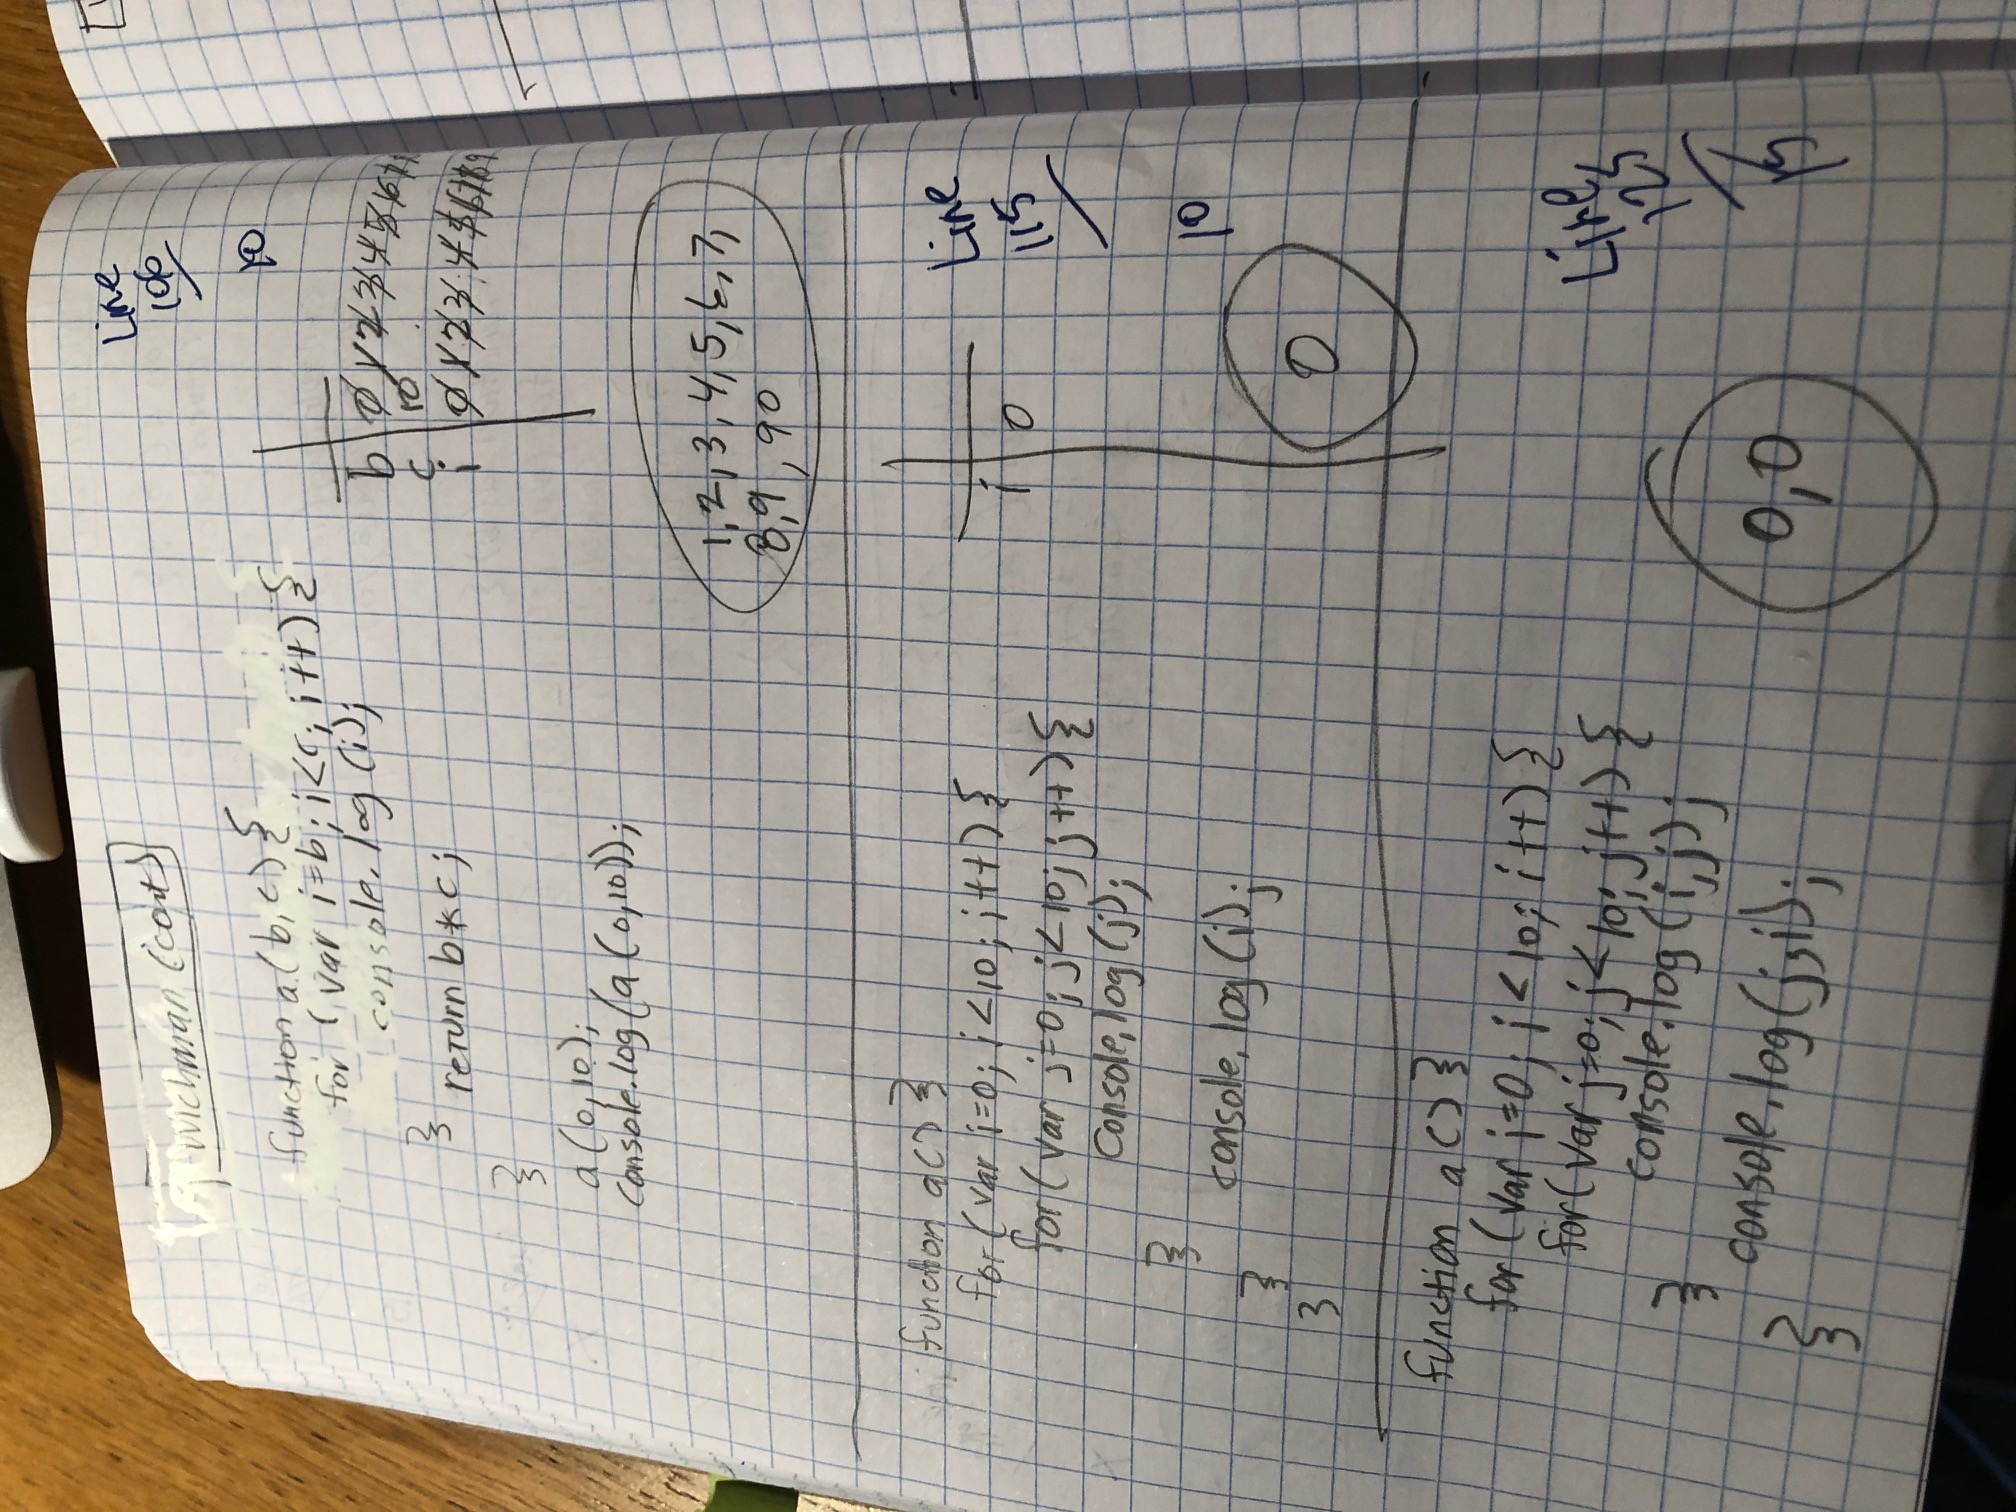 Wichman (cont)
Line
106
10
function a (b,c) {
for (var i=b; i<c; i++) {
console.log (i);
}
return b*c;
}
a (0,10);
console.log(a (0,10));
b 0 1 2 3 4 5 6
c 10
i 0 1 2 3 4 5 6 7 8 9
1,2,3,4,5,6,7,
8,9,90
function a() }
for (var i=0; i<10; i++) {
for (var j=0; j<10; j++) {
console.log (j);
}
console.log (i);
}
}
i 0
Line
115
10
0
function a () }
for (var i=0; i<10; i++) {
for (var j=0; j<10; j++) {
console.log (i,j);
}
console.log (j,i);
}
Line
125
15
0,0